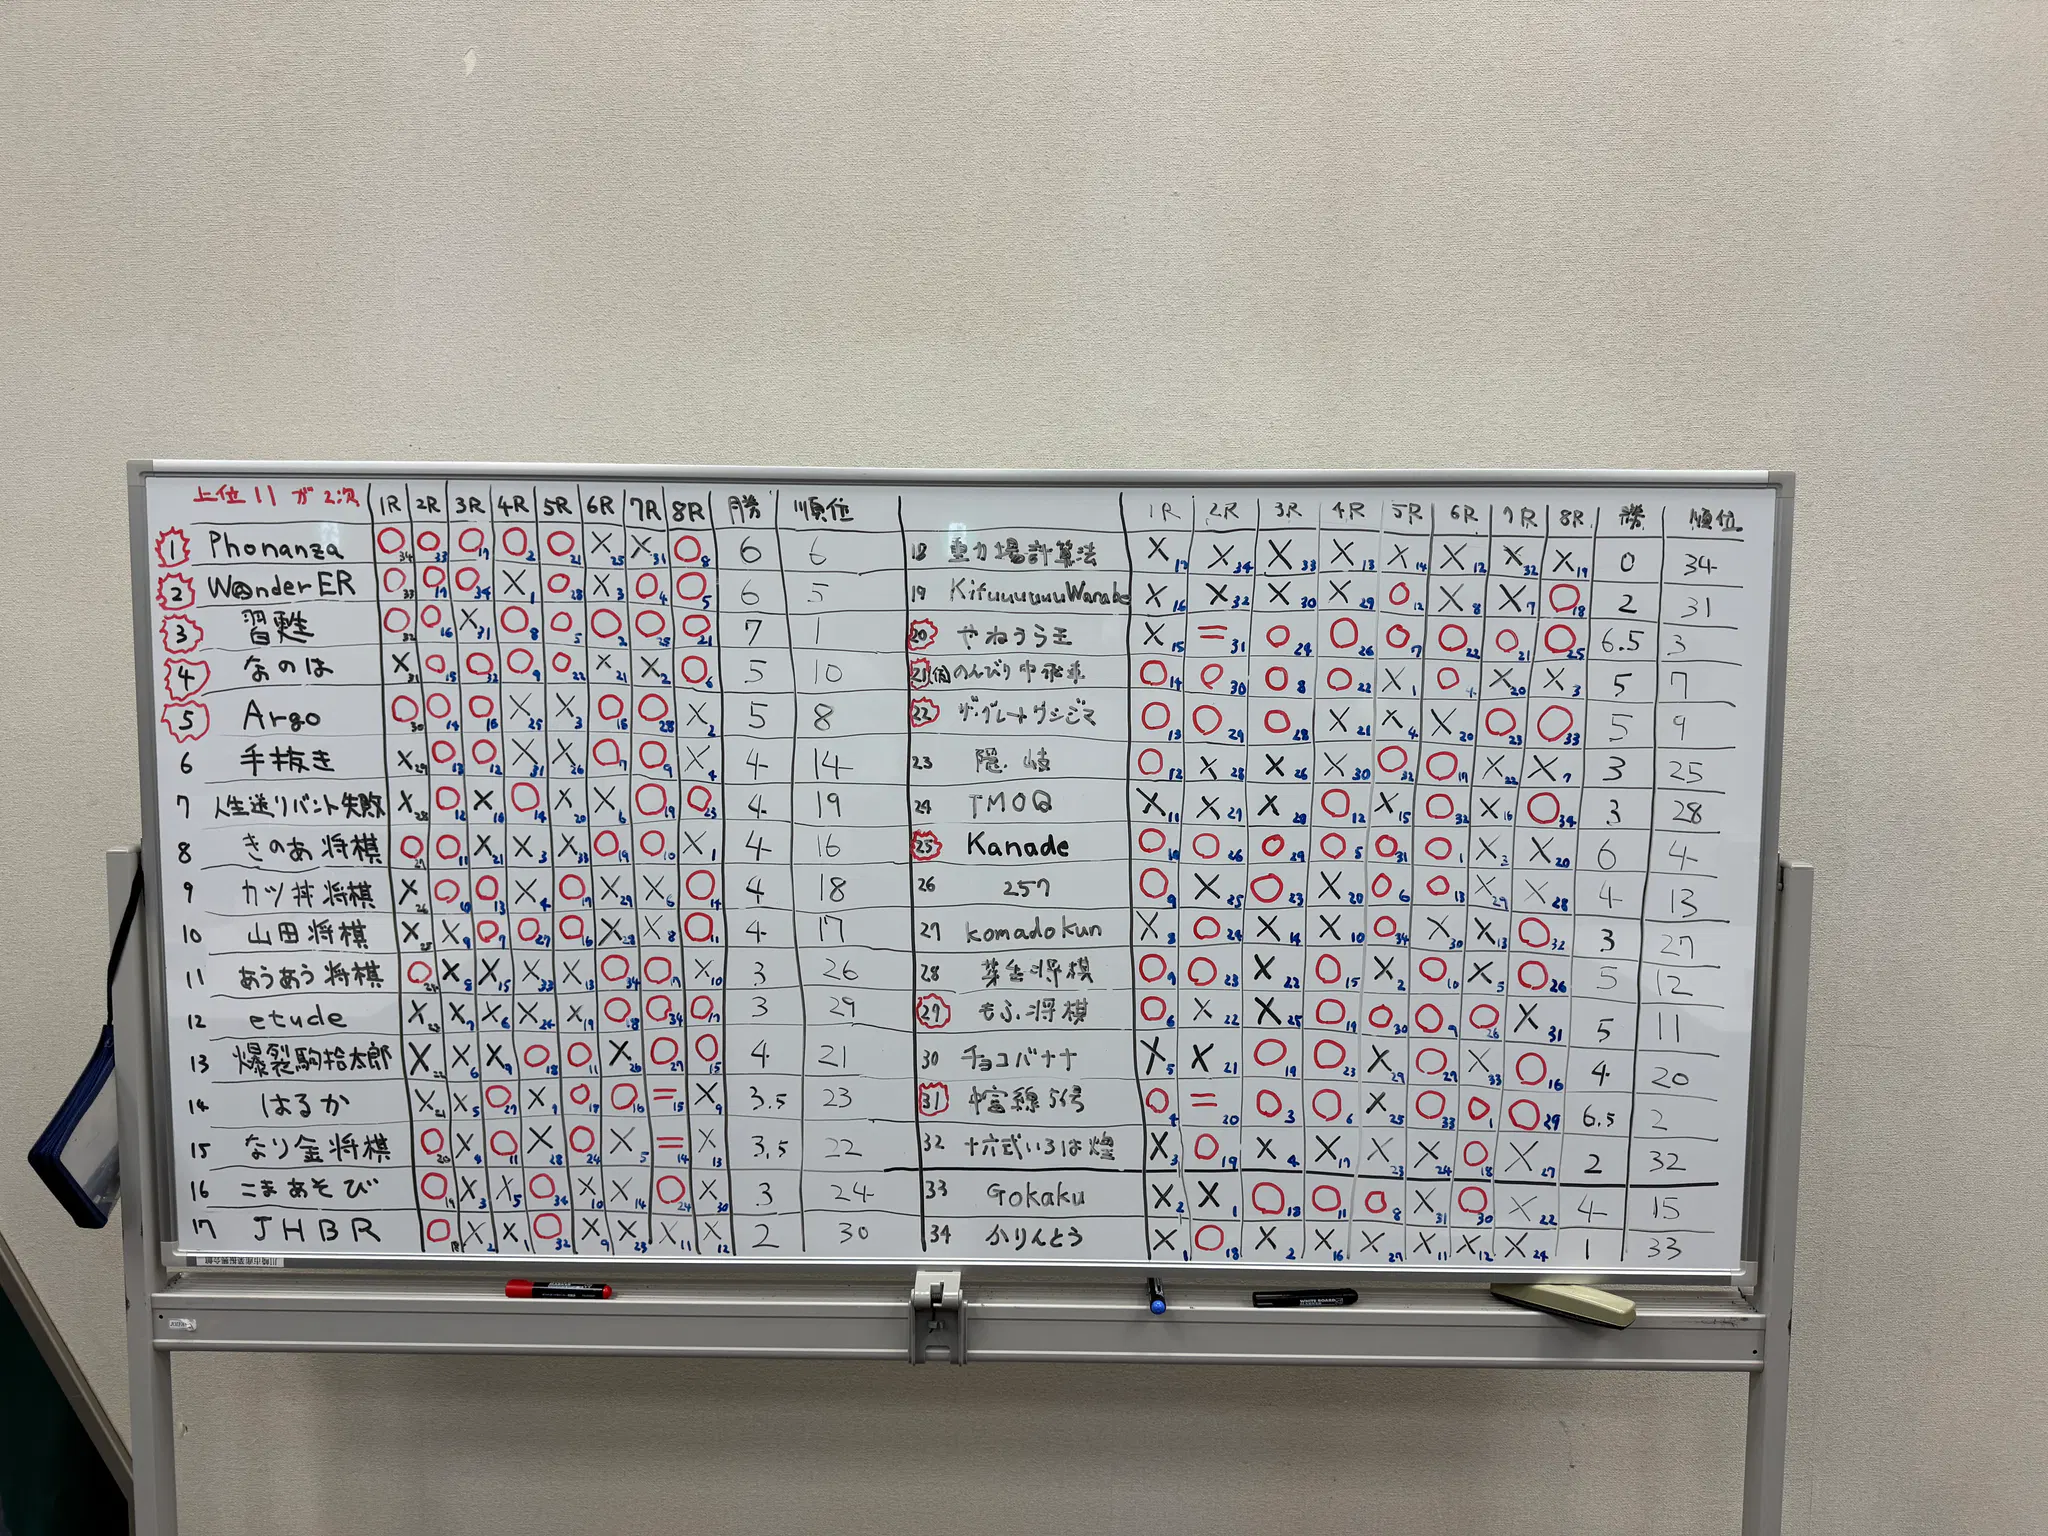 上位11が2次 1R 2R 3R 4R 5R 6R 7R 8R 勝 順位
1 Phonanza ○34 ○33 ○17 ○2 ○21 ×25 ×31 ○8 6 6
2 W@nderER ○33 ○17 ○34 ×1 ○28 ×3 ○4 ○5 6 5
3 習甦 ○32 ○16 ×31 ○8 ○5 ○2 ○25 ○21 7 1
4 なのは ×31 ○15 ○32 ○9 ○22 ×21 ×2 ○6 5 10
5 Argo ○30 ○14 ○16 ×25 ×3 ○15 ○28 ×2 5 8
6 手抜き ×29 ○13 ○12 ×31 ×26 ○7 ○9 ×4 4 14
7 人生送りバント失敗 ×28 ○12 ×10 ○14 ×20 ×6 ○19 ○23 4 19
8 きのあ将棋 ○27 ○11 ×21 ×3 ×33 ○19 ○10 ×1 4 16
9 カツ丼将棋 ×26 ○10 ○13 ×4 ○17 ×29 ×6 ○14 4 18
10 山田将棋 ×25 ×9 ○7 ○27 ○16 ×28 ×8 ○11 4 17
11 あうあう将棋 ○24 ×8 ×15 ×33 ×13 ○34 ○17 ×10 3 26
12 etude ×23 ×7 ×6 ×24 ×19 ○18 ○34 ○17 3 29
13 爆裂駒捨太郎 ×22 ×6 ×9 ○18 ○11 ×26 ○27 ○15 4 21
14 はるか ×21 ×5 ○27 ×7 ○18 ○16 =15 ×9 3.5 23
15 なり金将棋 ○20 ×4 ○11 ×28 ○24 ×5 =14 ×13 3.5 22
16 こまあそび ○19 ×3 ×5 ○34 ×10 ×14 ○24 ×30 3 24
17 JHBR ○18 ×2 ×1 ○32 ×9 ×23 ×11 ×12 2 30
1R 2R 3R 4R 5R 6R 7R 8R 勝 順位
18 重力場計算法 ×17 ×34 ×33 ×13 ×14 ×12 ×32 ×19 0 34
19 KifuuuuuuWarabe ×16 ×32 ×30 ×29 ○12 ×8 ×7 ○18 2 31
20 やねうら王 ×15 =31 ○24 ○26 ○7 ○22 ○21 ○25 6.5 3
21 (仮)のんびり中飛車 ○14 ○30 ○8 ○22 ×1 ○4 ×20 ×3 5 7
22 ザ・グレートウシジマ ○13 ○29 ○28 ×21 ×4 ×20 ○23 ○33 5 9
23 隠岐 ○12 ×28 ×26 ×30 ○32 ○17 ×22 ×7 3 25
24 TMOQ ×11 ×27 ×20 ○12 ×15 ○32 ×16 ○34 3 28
25 Kanade ○10 ○26 ○29 ○5 ○31 ○1 ×3 ×20 6 4
26 257 ○9 ×25 ○23 ×20 ○6 ○13 ×29 ×28 4 13
27 komadokun ×8 ○24 ×14 ×10 ○34 ×30 ×13 ○32 3 27
28 芝生将棋 ○9 ○23 ×22 ○15 ×2 ○10 ×5 ○26 5 12
29 もふ将棋 ○6 ×22 ×25 ○19 ○30 ○9 ○26 ×31 5 11
30 チョコバナナ ×5 ×21 ○19 ○23 ×29 ○27 ×33 ○16 4 20
31 中宮線56号 ○4 =20 ○3 ○6 ×25 ○33 ○1 ○29 6.5 2
32 十六式いろは煌 ×3 ○19 ×4 ×17 ×23 ×24 ○18 ×27 2 32
33 Gokaku ×2 ×1 ○18 ○11 ○8 ×31 ○30 ×22 4 15
34 かりんとう ×1 ○18 ×2 ×16 ×27 ×11 ×12 ×24 1 33
WHITE BOARD